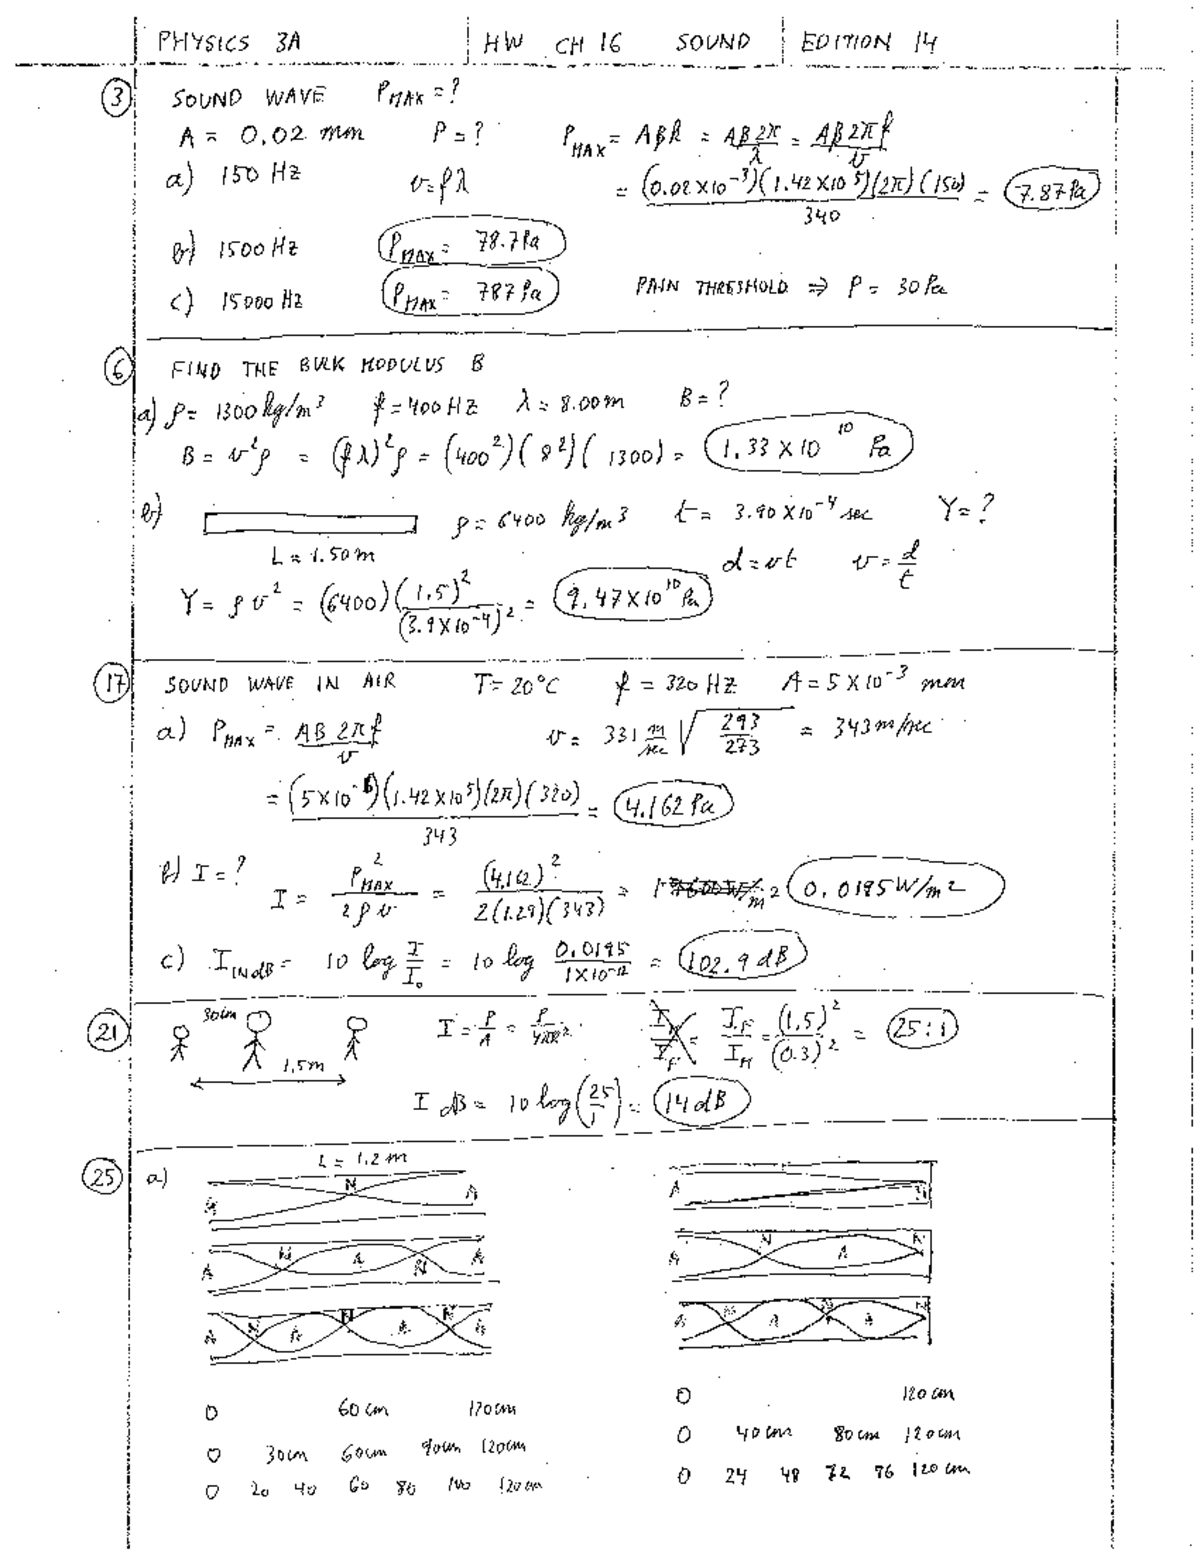 PHYSICS 3A HW CH 16 SOUND EDITION 14
③ SOUND WAVE P_MAX = ?
A = 0.02 mm P = ? P_MAX = ABk = AB2π/λ = AB2πf/v
a) 150 Hz v = fλ = (0.02×10⁻³)(1.42×10⁵)(2π)(150)/340 = 7.87 Pa
b) 1500 Hz P_MAX = 78.7 Pa
c) 15000 Hz P_MAX = 787 Pa PAIN THRESHOLD ⇒ P = 30 Pa
⑥ FIND THE BULK MODULUS B
a) ρ = 1300 kg/m³ f = 400 Hz λ = 8.00 m B = ?
B = v²ρ = (fλ)²ρ = (400²)(8²)(1300) = 1.33×10¹⁰ Pa
b) ρ = 6400 kg/m³ t = 3.90×10⁻⁴ sec Y = ?
L = 1.50 m d = vt v = d/t
Y = ρv² = (6400)(1.5)²/(3.9×10⁻⁴)² = 9.47×10¹⁰ Pa
⑰ SOUND WAVE IN AIR T = 20°C f = 320 Hz A = 5×10⁻³ mm
a) P_MAX = AB2πf/v v = 331 m/sec √(293/273) = 343 m/sec
= (5×10⁻⁶)(1.42×10⁵)(2π)(320)/343 = 4.162 Pa
b) I = ? I = P_MAX²/2ρv = (4.162)²/2(1.29)(343) = 0.0195 W/m²
c) I_IN dB = 10 log I/I₀ = 10 log 0.0195/1×10⁻¹² = 102.9 dB
㉑ 30cm I = P/A = P/4πR² I_F/I_M = (1.5)²/(0.3)² = 25:1
1.5m
I dB = 10 log(25/1) = 14 dB
㉕ a) L = 1.2 m
N A A N
A N A N A A N A N
A N A N A N A A N A N A N
0 60 cm 120 cm 0 120 cm
0 30cm 60cm 90cm 120cm 0 40 cm 80 cm 120 cm
0 20 40 60 80 100 120 cm 0 24 48 72 96 120 cm